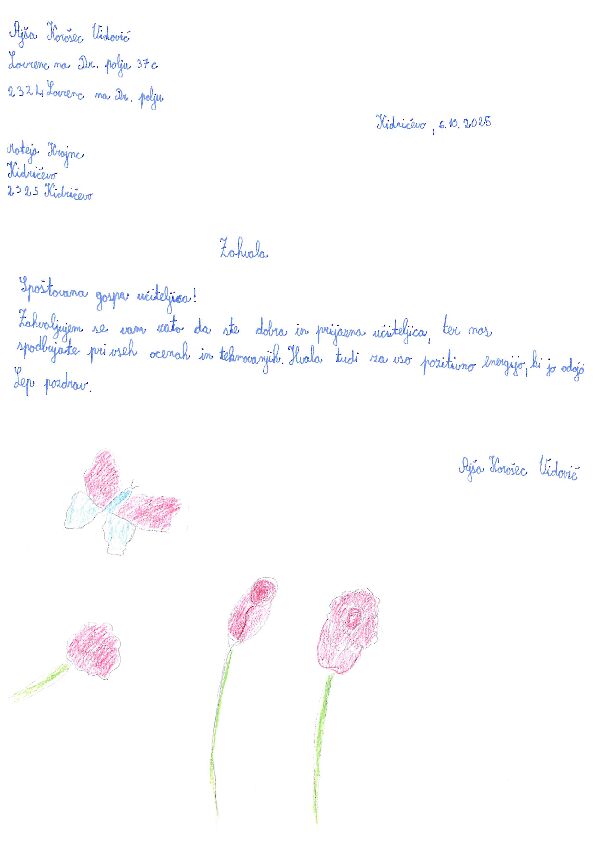 Ajša Korošec Vidovič
Lovrenc na Dr. polju 37c
2324 Lovrenc na Dr. polju
Kidričevo, 6.10.2025
Mateja Krajnc
Kidričevo
2325 Kidričevo
Zahvala
Spoštovana gospa učiteljica!
Zahvaljujem se vam zato da ste dobra in prijazna učiteljica, ter nas
spodbujate pri vseh ocenah in tekmovanjih. Hvala tudi za vso pozitivno energijo, ki jo
Lep pozdrav.
Ajša Korošec Vidovič